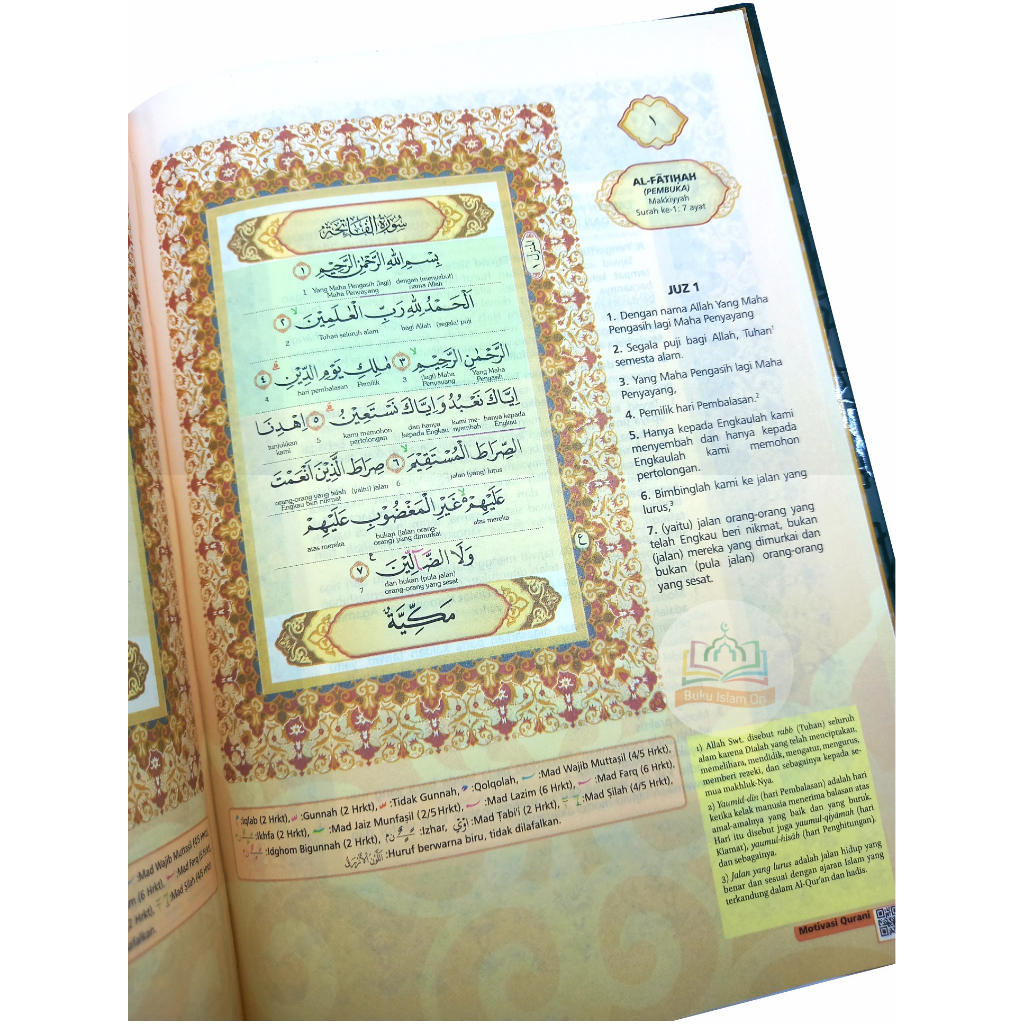 ١
AL-FĀTIḤAH
(PEMBUKA)
Makkiyyah
Surah ke-1: 7 ayat
سُوْرَةُ الْفَاتِحَةِ
بِسْمِ اللّٰهِ الرَّحْمٰنِ الرَّحِيْمِ ١
dengan (menyebut) nama Allah
Yang Maha Pengasih (lagi) Maha Penyayang
1
اَلْحَمْدُ لِلّٰهِ رَبِّ الْعٰلَمِيْنَ ٢
(segala) puji
bagi Allah
Tuhan seluruh alam
2
الرَّحْمٰنِ الرَّحِيْمِ ٣ مٰلِكِ يَوْمِ الدِّيْنِ ٤
Yang Maha Pengasih
(lagi) Maha Penyayang
3
Pemilik
hari pembalasan
4
اِيَّاكَ نَعْبُدُ وَاِيَّاكَ نَسْتَعِيْنُ ٥ اِهْدِنَا
hanya kepada Engkau
kami menyembah
dan hanya kepada Engkau
kami memohon pertolongan
5
tunjukkan kami
الصِّرَاطَ الْمُسْتَقِيْمَ ٦ صِرَاطَ الَّذِيْنَ اَنْعَمْتَ
jalan (yang) lurus
6
(yaitu) jalan
orang-orang yang telah Engkau beri nikmat
عَلَيْهِمْ غَيْرِ الْمَغْضُوْبِ عَلَيْهِمْ
atas mereka
bukan (jalan orang-orang) yang dimurkai
atas mereka
وَلَا الضَّاۤلِّيْنَ ٧
dan bukan (pula jalan) orang-orang yang sesat
7
مَكِّيَّةٌ
المنزل ١
ع
JUZ 1
1. Dengan nama Allah Yang Maha
Pengasih lagi Maha Penyayang
2. Segala puji bagi Allah, Tuhan¹
semesta alam.
3. Yang Maha Pengasih lagi Maha
Penyayang,
4. Pemilik hari Pembalasan.²
5. Hanya kepada Engkaulah kami
menyembah dan hanya kepada
Engkaulah kami memohon
pertolongan.
6. Bimbinglah kami ke jalan yang
lurus,³
7. (yaitu) jalan orang-orang yang
telah Engkau beri nikmat, bukan
(jalan) mereka yang dimurkai dan
bukan (pula jalan) orang-orang
yang sesat.
Buku Islam On
1) Allah Swt. disebut rabb (Tuhan) seluruh
alam karena Dialah yang telah menciptakan,
memelihara, mendidik, mengatur, mengurus,
memberi rezeki, dan sebagainya kepada se-
mua makhluk-Nya.
2) Yaumid-dīn (hari Pembalasan) adalah hari
ketika kelak manusia menerima balasan atas
amal-amalnya yang baik dan yang buruk.
Hari itu disebut juga yaumul-qiyāmah (hari
Kiamat), yaumul-ḥisāb (hari Penghitungan),
dan sebagainya.
3) Jalan yang lurus adalah jalan hidup yang
benar dan sesuai dengan ajaran Islam yang
terkandung dalam Al-Qur'an dan hadis.
Motivasi Qurani
:Iqlab (2 Hrkt), :Gunnah (2 Hrkt), :Tidak Gunnah, :Qolqolah, :Mad Wajib Muttaṣil (4/5 Hrkt)
:Ikhfa (2 Hrkt), :Mad Jaiz Munfaṣil (2/5 Hrkt), :Mad Lazim (6 Hrkt), :Mad Farq (6 Hrkt),
:Idghom Bigunnah (2 Hrkt), :Izhar, :Mad Ṭabi'i (2 Hrkt), :Mad Ṣilah (4/5 Hrkt),
:Huruf berwarna biru, tidak dilafalkan.
:Mad Wajib Muttaṣil (4/5 Hrkt)